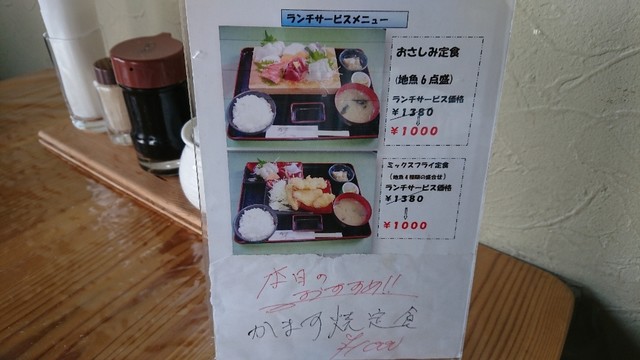 ランチサービスメニュー
おさしみ定食
(地魚6点盛)
ランチサービス価格
￥1380
￥1000
ミックスフライ定食
(地魚4種類の盛合せ)
ランチサービス価格
￥1380
￥1000
本日の
おすすめ!!
かます焼定食
¥1000